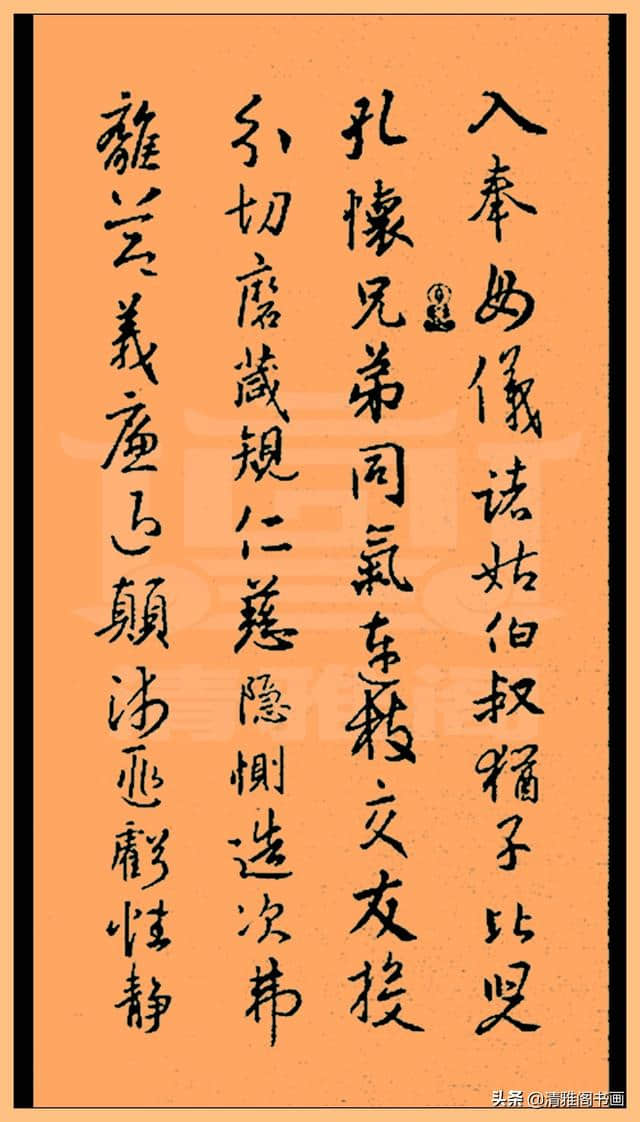 入奉母儀諸姑伯叔猶子比兒
孔懷兄弟同氣連枝交友投
分切磨箴規仁慈隱惻造次弗
離節義廉退顛沛匪虧性静
清雅阁
头条 @清雅阁书画